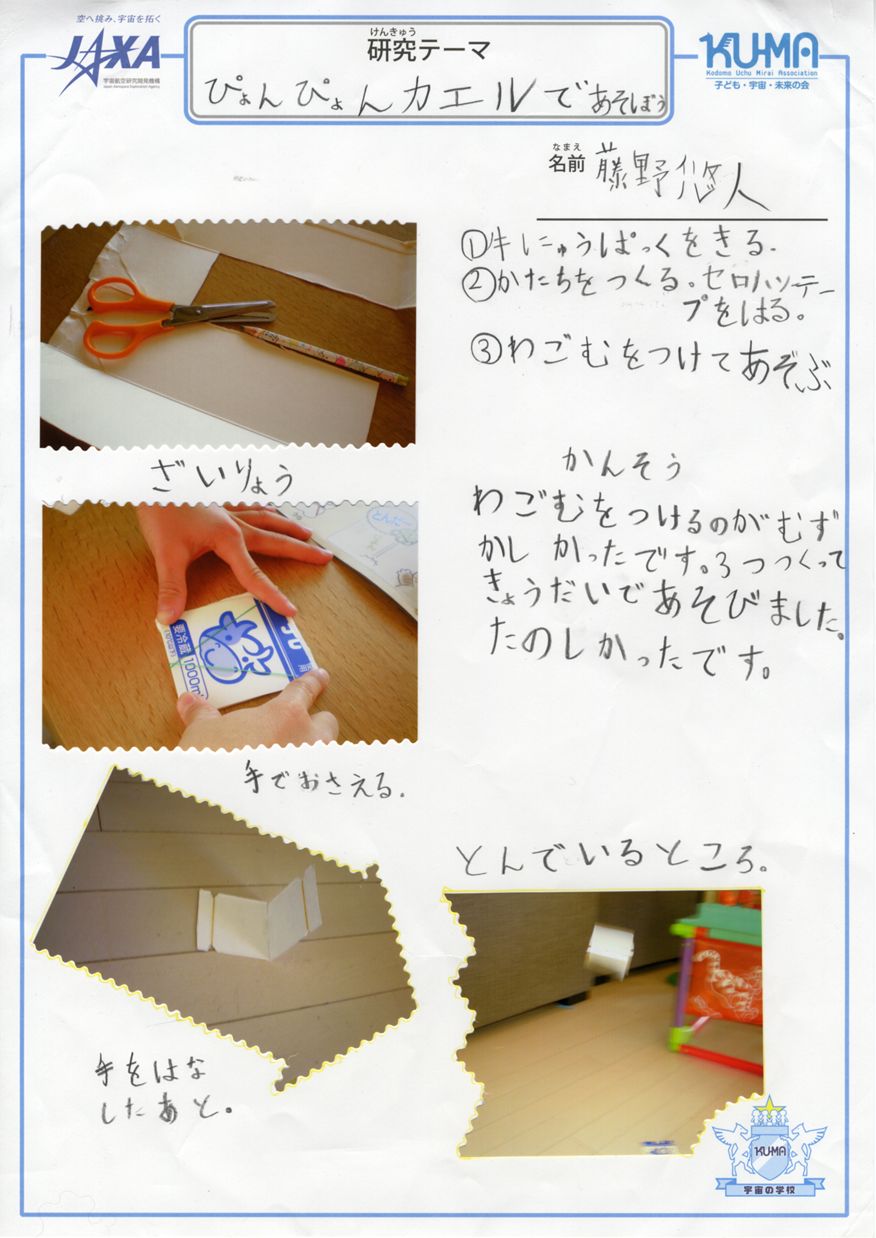 空へ挑み、宇宙を拓く
JAXA
宇宙航空研究開発機構
Japan Aerospace Exploration Agency
けんきゅう
研究テーマ
ぴょんぴょんカエルであそぼう
KU-MA
Kodomo Uchu Mirai Association
子ども・宇宙・未来の会
なまえ
名前 藤野悠人
①牛にゅうぱっくをきる.
②かたちをつくる。セロハンテー
プをはる。
③わごむをつけてあそぶ
ざいりょう
かんそう
わごむをつけるのがむず
かしかったです。3つつくって
きょうだいであそびました。
たのしかったです。
とんだー
要冷蔵 1000ml
手でおさえる.
とんでいるところ。
手をはな
したあと。
KU-MA
宇宙の学校